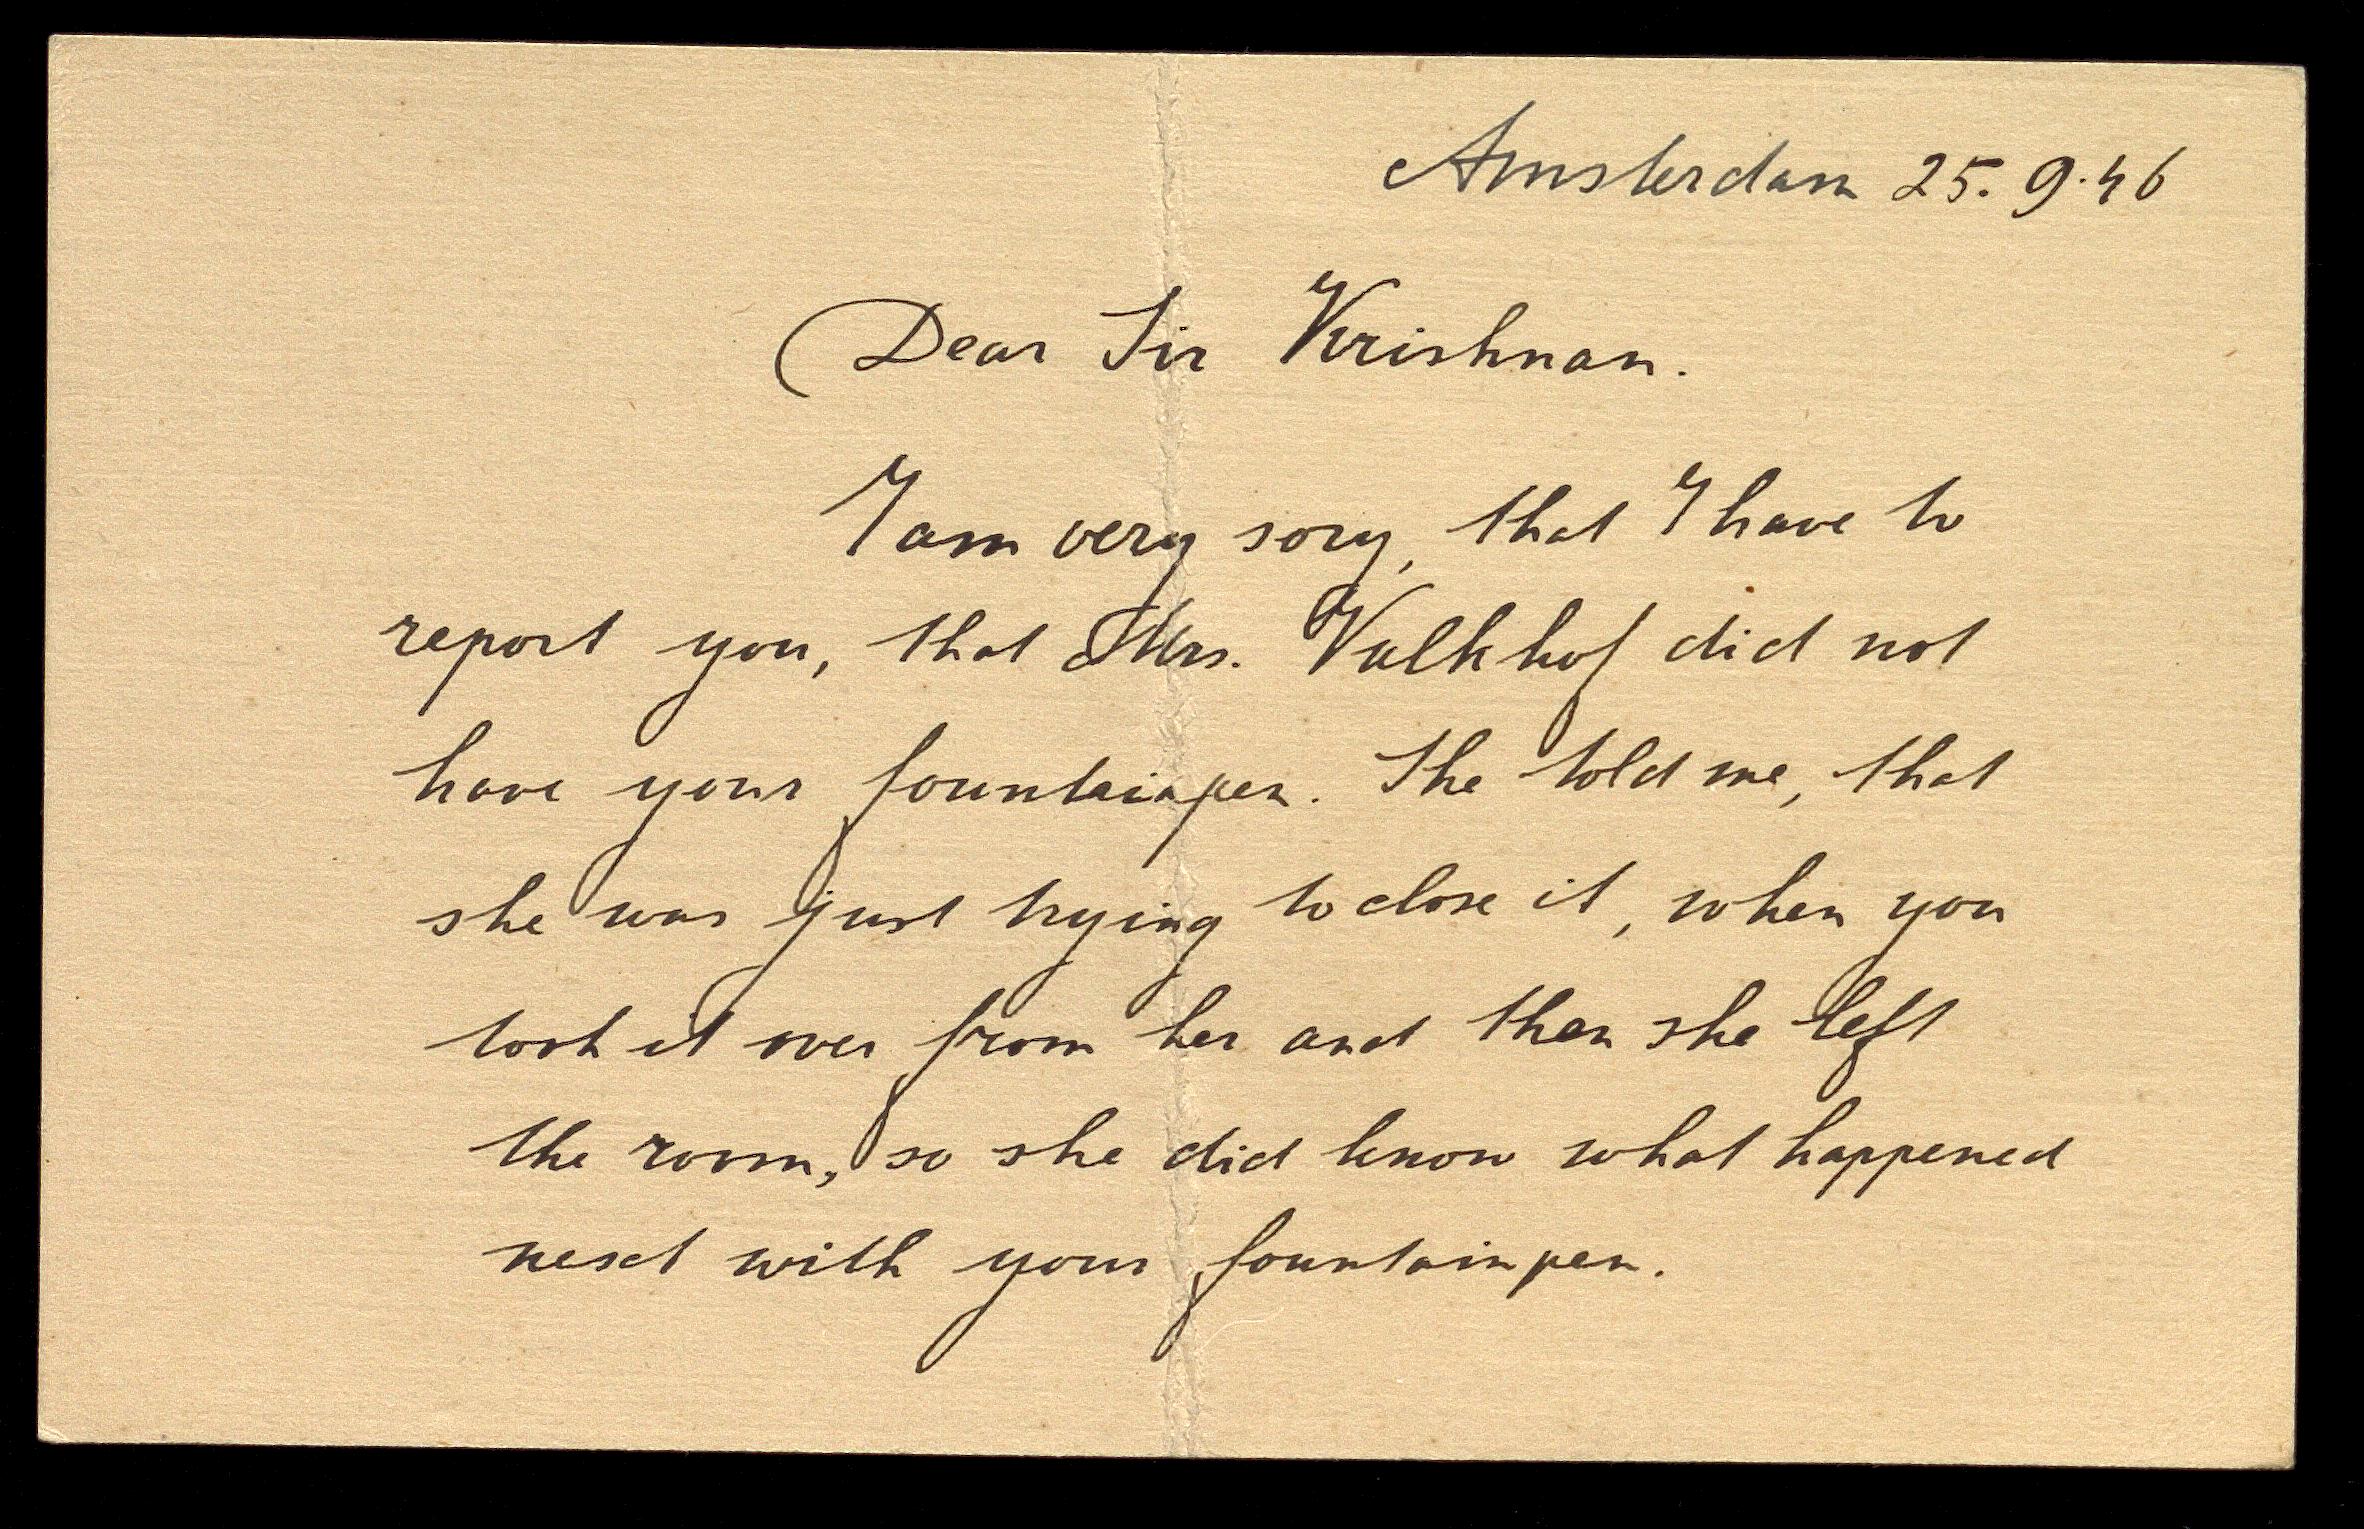 Amsterdam 25.9.46
Dear Sir Krishnan.
I am very sory, that I have to
report you, that Mrs. Valkhof did not
have your fountainpen. She told me, that
she was just trying to close it, when you
took it over from her and then she left
the room, so she did know what happened
next with your fountainpen.